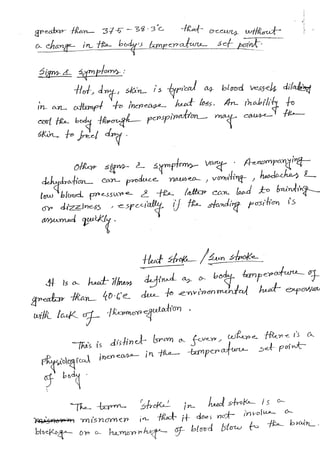 greater than 37.5 - 38.3°c that occurs without
a change in the body's temperature set point.
Signs & symptoms:
Hot, dry, skin is typical as blood vessels dilating
in an attempt to increase heat loss. An inability to
cool the body through perspiration may cause the
skin to feel dry.
Other signs & symptoms vary. Accompanying
dehydration can produce nausea, vomiting, headaches &
low blood pressure & the latter can lead to fainting
or dizziness, especially if the standing position is
assumed quickly.
Heat stroke / Sun stroke
It is a heat illness defined as a body temperature of
greater than 40.6°c due to environmental heat exposure
with lack of thermoregulation.
This is distinct from a fever, where there is a
physiological increase in the temperature set point
of body.
The term 'stroke' in heat stroke is a
misnomer in that it does not involve a
blockage or a hemorrhage of blood blow to the brain.